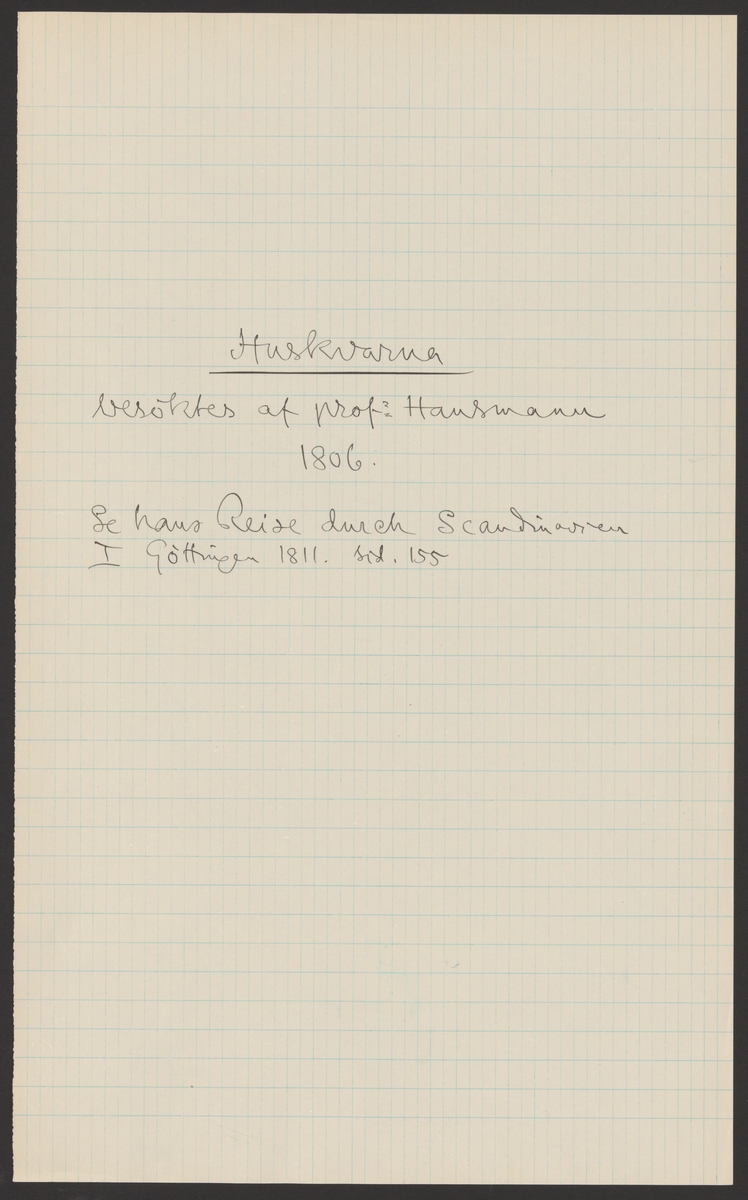 Huskvarna
besöktes af prof: Hausmann
1806.
Se hans Reise durch Scandinavien
I Göttingen 1811. sid. 155